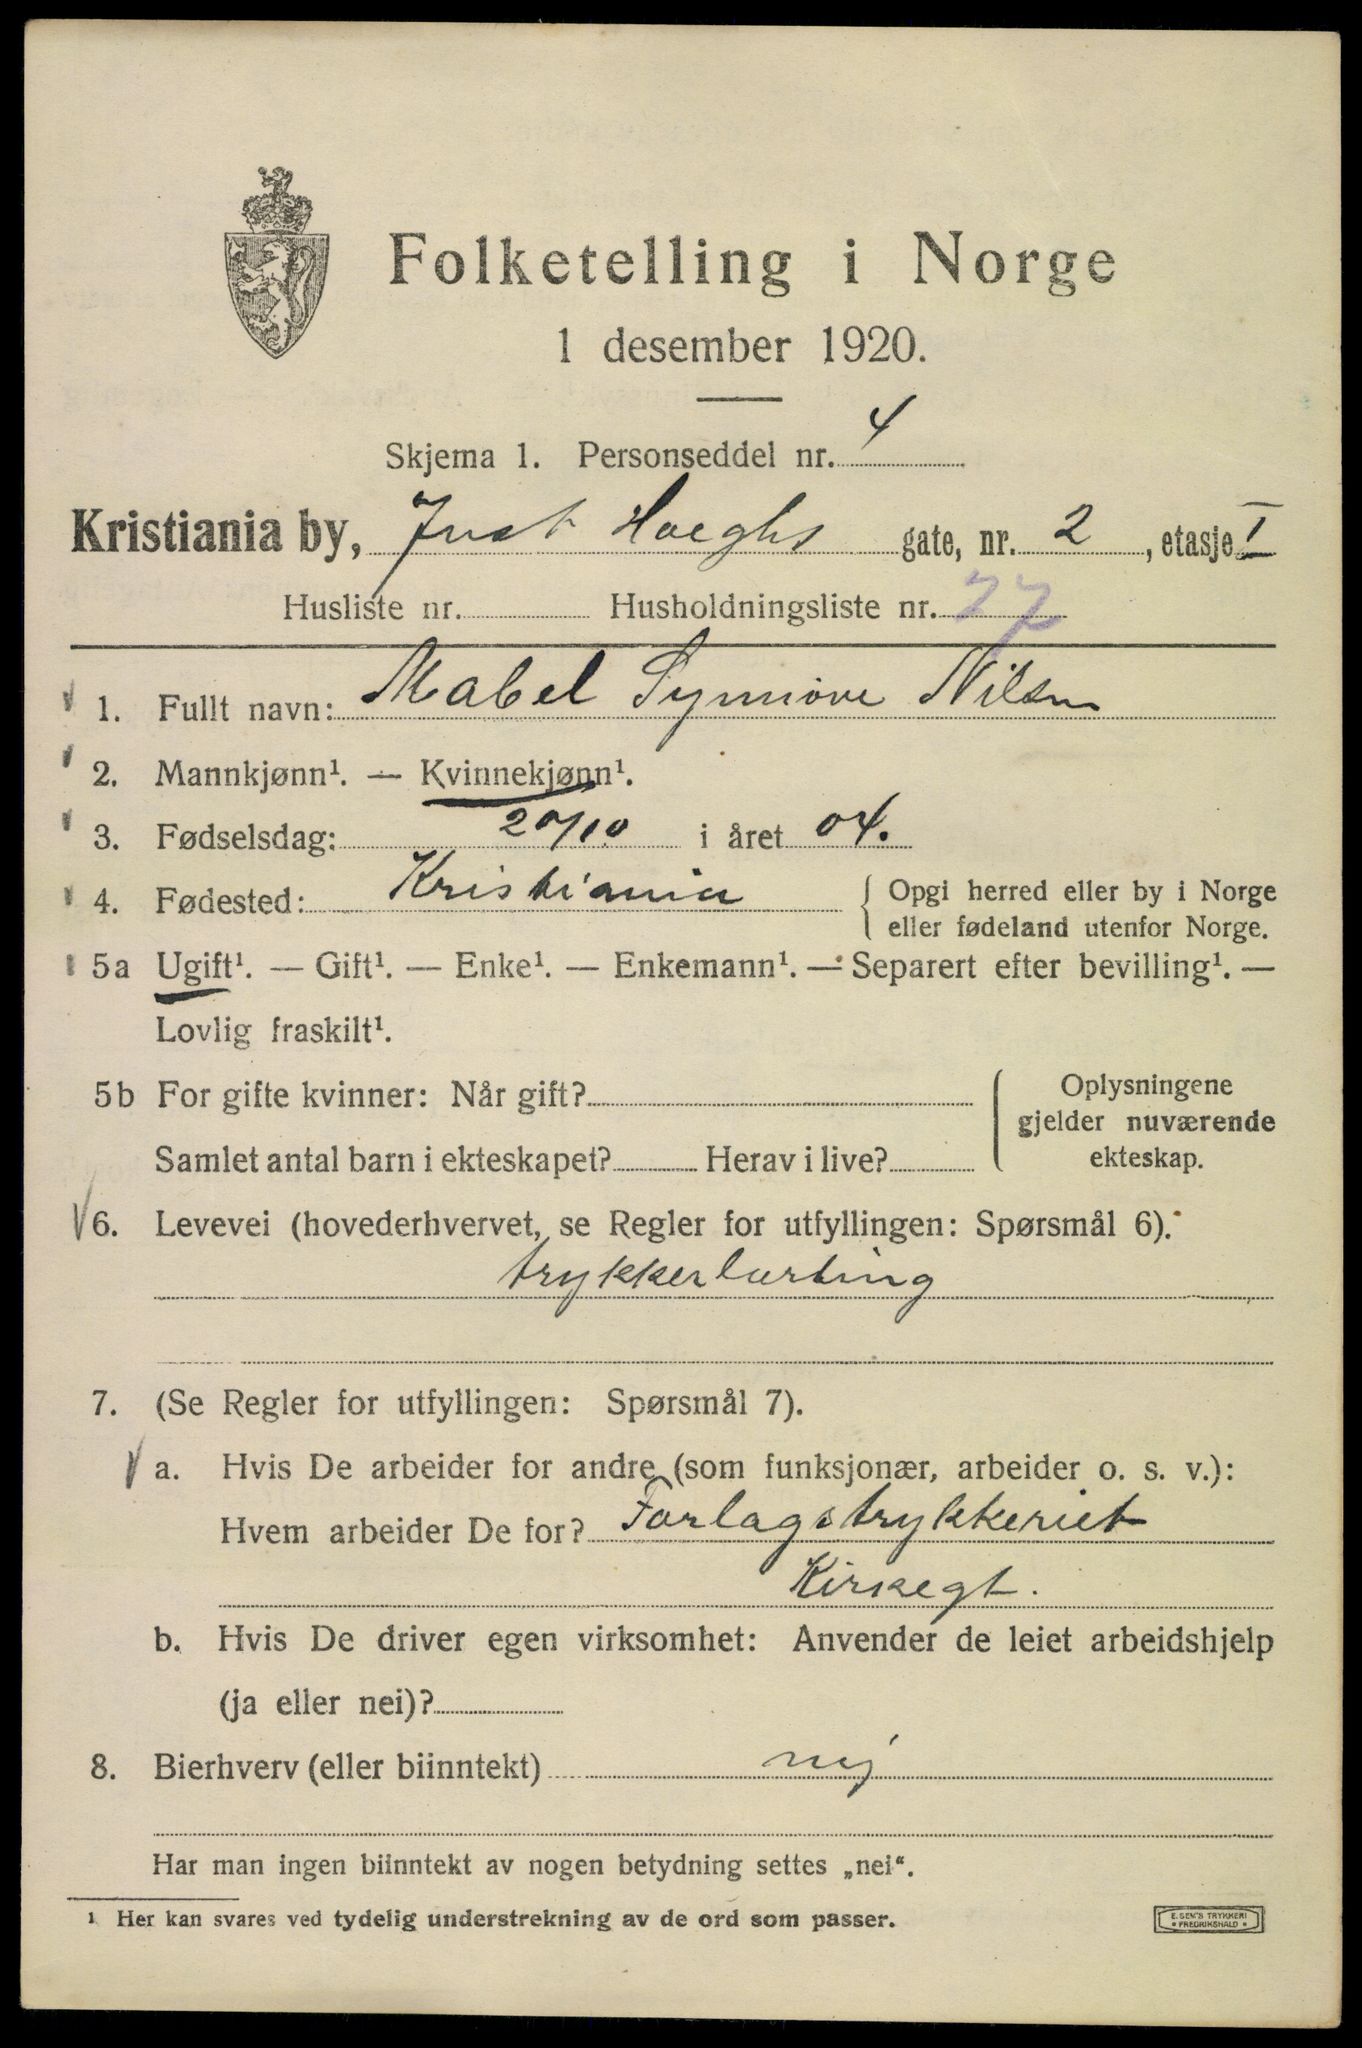 Folketelling i Norge
1 desember 1920.
Skjema 1. Personseddel nr. 4
Kristiania by, Just Hoeghs gate, nr. 2, etasje I
Husliste nr. Husholdningsliste nr. 27
1. Fullt navn: Mabel Synnøve Nilsen
2. Mannkjønn¹. — Kvinnekjønn¹.
3. Fødselsdag: 20/10 i året 04.
4. Fødested: Kristiania { Opgi herred eller by i Norge
eller fødeland utenfor Norge.
5a Ugift¹. — Gift¹. — Enke¹. — Enkemann¹. — Separert efter bevilling¹. —
Lovlig fraskilt¹.
5b For gifte kvinner: Når gift? { Oplysningene
gjelder nuværende
Samlet antal barn i ekteskapet? Herav i live? ekteskap.
6. Levevei (hovederhvervet, se Regler for utfyllingen: Spørsmål 6).
trykkerlærling
7. (Se Regler for utfyllingen: Spørsmål 7).
a. Hvis De arbeider for andre (som funksjonær, arbeider o. s. v.):
Hvem arbeider De for? Forlagstrykkeriet
Kirkegt.
b. Hvis De driver egen virksomhet: Anvender de leiet arbeidshjelp
(ja eller nei)?
8. Bierhverv (eller biinntekt) nej
Har man ingen biinntekt av nogen betydning settes „nei“.
¹ Her kan svares ved tydelig understrekning av de ord som passer.
E. SEM'S TRYKKERI
FREDRIKSHALD